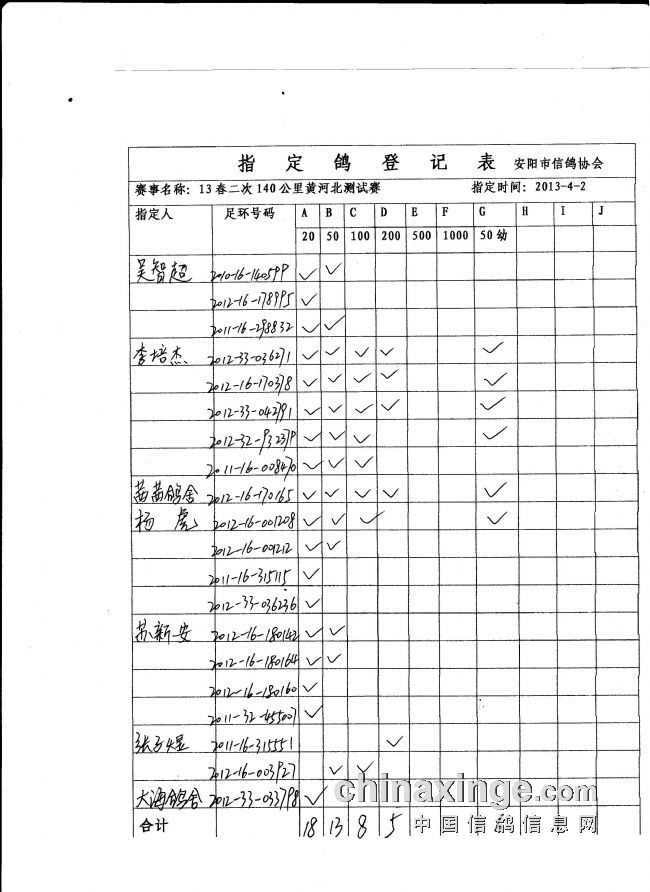 指定鸽登记表 安阳市信鸽协会
赛事名称：13春二次140公里黄河北测试赛 指定时间：2013-4-2
指定人 足环号码 A B C D E F G H I J
20 50 100 200 500 1000 50幼
吴智超 2010-16-140599 ✓ ✓
2012-16-178995 ✓
2011-16-298832 ✓ ✓
李培杰 2012-33-036271 ✓ ✓ ✓ ✓ ✓
2012-16-170378 ✓ ✓ ✓ ✓ ✓
2012-33-042791 ✓ ✓ ✓ ✓ ✓
2012-32-932379 ✓ ✓ ✓ ✓
2011-16-008470 ✓ ✓ ✓
茜茜鸽舍 2012-16-170165 ✓ ✓ ✓ ✓ ✓
杨虎 2012-16-001208 ✓ ✓ ✓ ✓
2012-16-001212 ✓ ✓
2011-16-315115 ✓
2012-33-036236 ✓
苏新安 2012-16-180142 ✓ ✓
2012-16-180164 ✓ ✓
2012-16-180160 ✓
2011-32-455007 ✓
张子煜 2011-16-315551 ✓
2012-16-003927 ✓ ✓
大海鸽舍 2012-33-033798 ✓
合计 18 13 8 5
chinaxinge.com
中国信鸽信息网